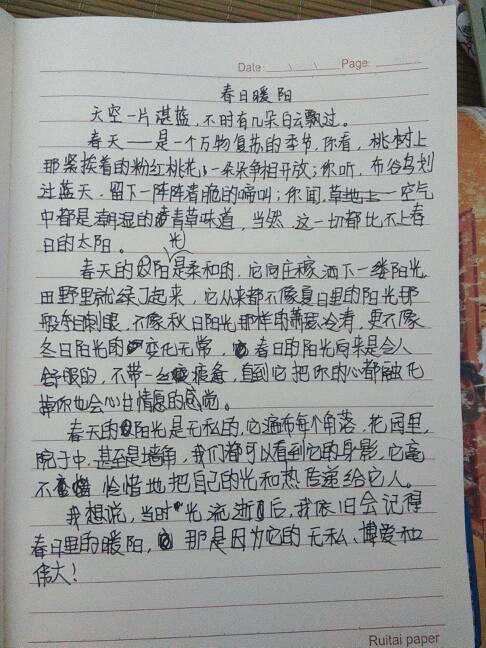 Date: Page:
春日暖阳
天空一片湛蓝,不时有几朵白云飘过。
春天——是一个万物复苏的季节,你看,桃树上
那紧挨着的粉红桃花,一朵朵争相开放;你听,布谷鸟划
过蓝天,留下一阵阵清脆的啼叫;你闻,草地上——空气
中都是潮湿的青草味道,当然,这一切都比不上春
日的太阳。
春天的阳光是柔和的,它向庄稼洒下一缕阳光,
田野里就绿了起来,它从来都不像夏日里的阳光那
般刺眼,不像秋日阳光那样的萧瑟冷涛,更不像
冬日阳光的变化无常,春日的阳光向来是令人
舒服的,不带一丝疲惫,直到它把你的心都融化
掉你也会心甘情愿的感觉。
春天的阳光是无私的,它遍布每个角落,花园里,
院子中,甚至是墙角,我们都可以看到它的身影,它毫
不吝惜地把自己的光和热传递给它人。
我想说,当时光流逝后,我依旧会记得
春日里的暖阳,那是因为它的无私、博爱和
伟大!
Ruitai paper